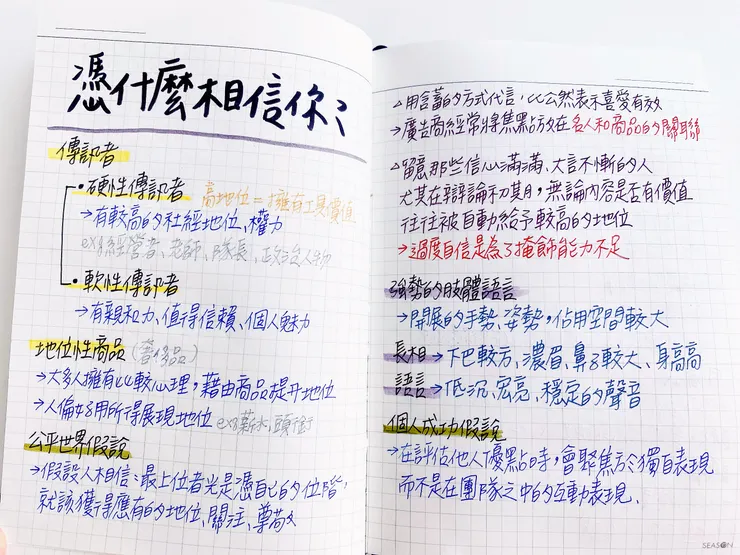 憑什麼相信你?
傳訊者
•硬性傳訊者 高地位=擁有工具價值
→有較高的社經地位、權力
ex:經營者、老師、隊長、政治人物
•軟性傳訊者
→有親和力、值得信賴、個人魅力
地位性商品(奢侈品)
→大多人擁有比較心理,藉由商品提升地位
→人偏好用所得展現地位 ex:薪水,頭銜
公平世界假說
→假設人相信:最上位者光是憑自己的位階,
就該獲得應有的地位、關注、尊敬
△用含蓄的方式代言,比公然表示喜愛有效
→廣告商經常將焦點放在名人和商品的關聯
△留意那些信心滿滿、大言不慚的人
尤其在辯論和其月,無論內容是否有價值
往往被自動給予較高的地位
→過度自信是為了掩飾能力不足
強勢的肢體語言
→開展的手勢、姿勢,佔用空間較大
長相→下巴較方、濃眉、鼻子較大、身高高
語言→低沉、宏亮、穩定的聲音
個人成功假說
→在評估他人優點時,會聚焦於獨自表現
而不是在團隊之中的互動表現.
SEASON